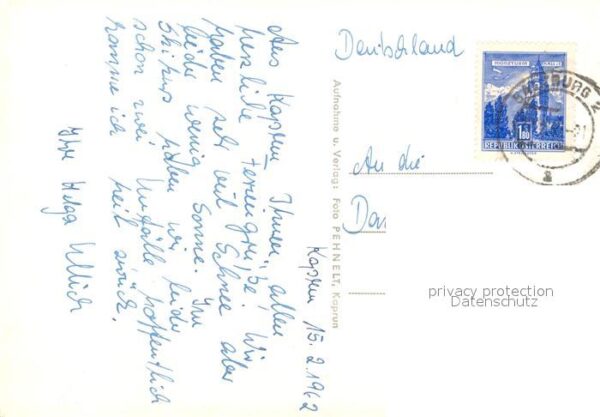 Kaprun 15.2.1962
Aus Kaprun Ihnen allen
herzliche Feriengrüße. Wir
haben sehr viel Schnee aber
leider wenig Sonne. Im
Skikurs haben wir leider
schon zwei Unfälle hoffentlich
komme ich heil zurück.
Ihre Helga Ullrich
Aufnahme u. Verlag: Foto PEHNELT, Kaprun
Deutschland
An die
Da
MÜNZTURM HALL I.T.
1.80
REPUBLIK ÖSTERREICH
SALZBURG 2
a
privacy protection
Datenschutz